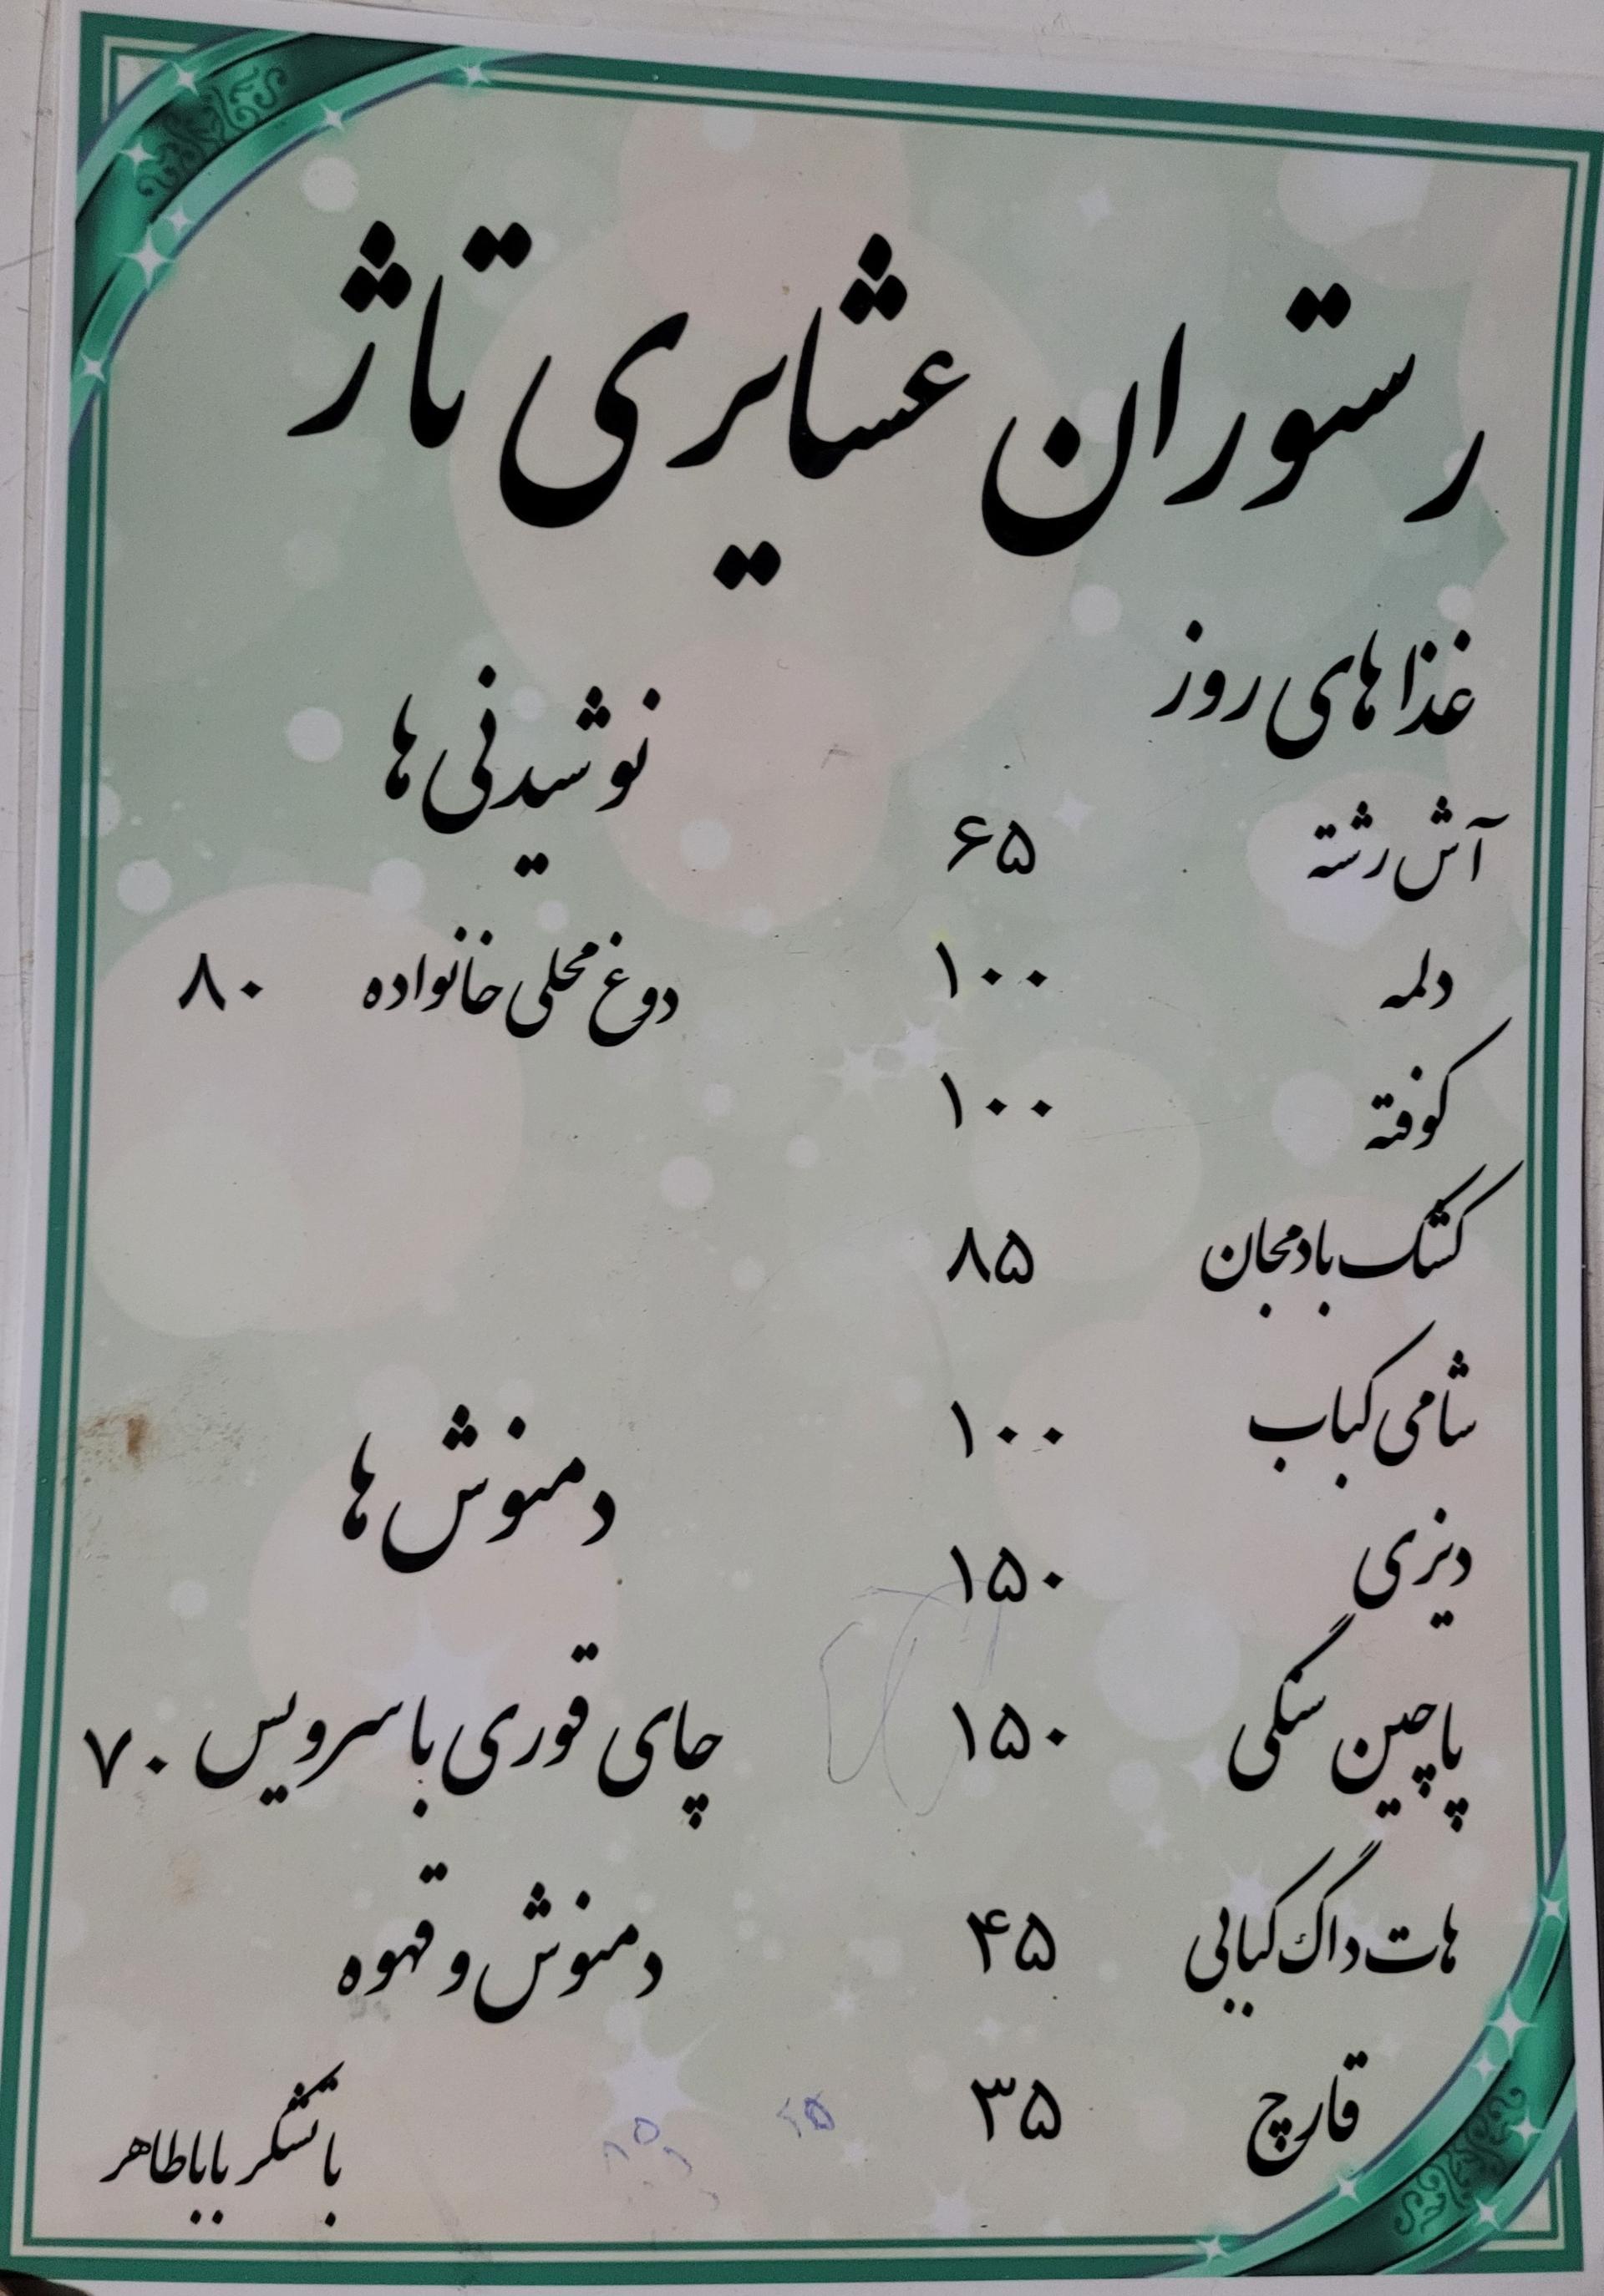 رستوران عشایری تاژ
غذاهای روز
آش رشته ۶۵
دلمه ۱۰۰
کوفته ۱۰۰
کشک بادمجان ۸۵
شامی کباب ۱۰۰
دیزی ۱۵۰
پاچین سنگی ۱۵۰
هات داگ کبابی ۴۵
قارچ ۳۵
نوشیدنی ها
دوغ محلی خانواده ۸۰
دمنوش ها
چای قوری با سرویس ۷۰
دمنوش و قهوه
با تشکر باباطاهر